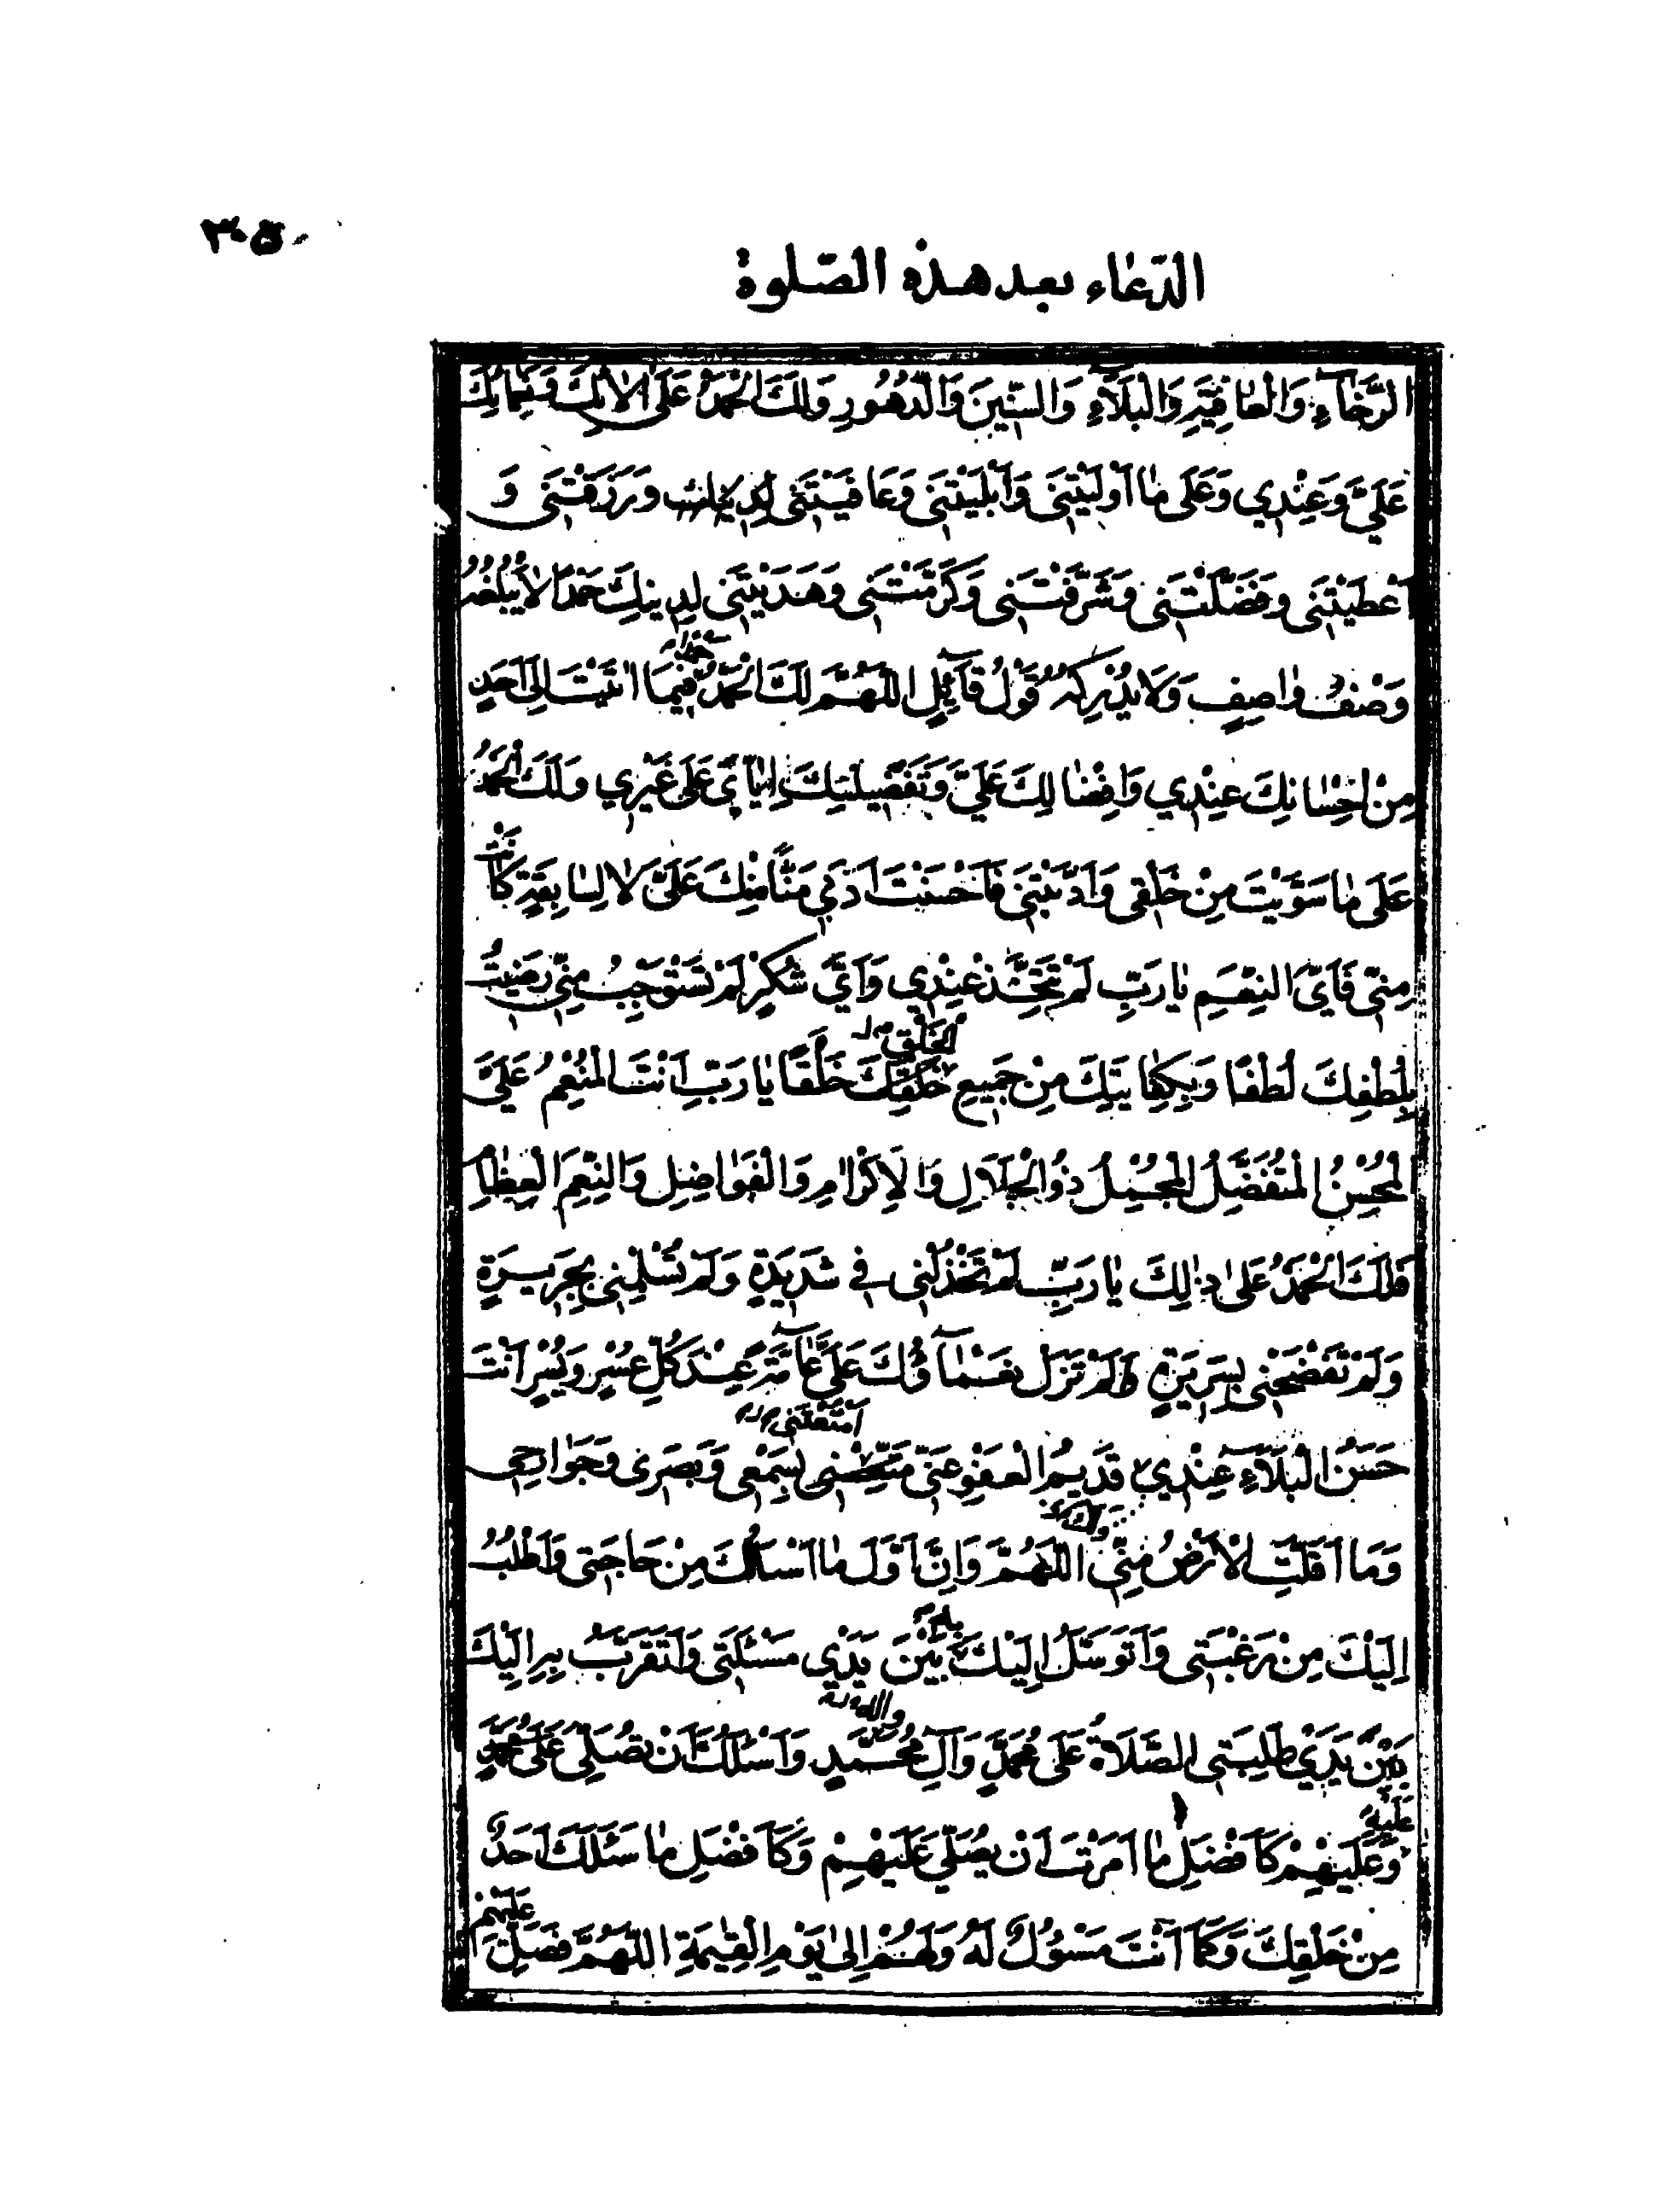 ٣٠٥
الدّعاء بعد هذه الصّلوة
الرَّخاءِ وَالْعافِيَةِ وَالْبَلاءِ وَالسِّنينَ وَالدُّهُورِ وَلَكَ الْحَمْدُ عَلى الآئِكَ وَنَعْمائِكَ
عَلَيَّ وَعِنْدي وَعَلى ما اَوْلَيْتَنى وَاَبْلَيْتَنى وَعافَيْتَنى وَرَزَقْتَنى وَ
اَعْطَيْتَنى وَفَضَّلْتَنى وَشَرَّفْتَنى وَكَرَّمْتَنى وَهَدَيْتَنى لِدينِكَ حَمْدًا لا يَبْلُغُهُ
وَصْفُ واصِفٍ وَلا يُدْرِكُهُ قَوْلُ قآئِلٍ اللّهُمَّ لَكَ الْحَمْدُ فيما اتَيْتَ اِلى اَحَدٍ
مِنْ اِحْسانِكَ عِنْدي وَاِفْضالِكَ عَلَيَّ وَتَفْضيلِكَ اِيّايَ عَلى غَيْري وَلَكَ الْحَمْدُ
عَلى ما سَوَّيْتَ مِنْ خَلْقى وَاَدَّبْتَنى فَاَحْسَنْتَ اَدَبي مَنًّا مِنْكَ عَلَيَّ لا لِسابِقَةٍ كانَتْ
مِنّى فَاَيَّ النِّعَمِ يا رَبِّ لَمْ تَتَّخِذْ عِنْدي وَاَيَّ شُكْرٍ لَمْ تَسْتَوْجِبْ مِنّى رَضيتُ
الْخَلْقِ
بِلُطْفِكَ لُطْفًا وَبِكِفايَتِكَ مِنْ جَميعِ خَلْقِكَ خَلَفًا يا رَبِّ اَنْتَ الْمُنْعِمُ عَلَيَّ
الْمُحْسِنُ الْمُتَفَضِّلُ الْمُجْمِلُ ذُو الْجَلالِ وَالْاِكْرامِ وَالْفَواضِلِ وَالنِّعَمِ الْعِظامِ
فَلَكَ الْحَمْدُ عَلى ذلِكَ يا رَبِّ لَمْ تَخْذُلْنى فى شَديدَةٍ وَلَمْ تُسْلِمْنى بِجَريرَةٍ
وَلَمْ تَفْضَحْنى بِسَريرَةٍ وَلَمْ تَزَلْ نَعْماؤُكَ عَلَيَّ عامَّةً عِنْدَ كُلِّ عُسْرٍ وَيُسْرٍ اَنْتَ
اَمْتَعْتَنى
حَسَنُ الْبَلاءِ عِنْدي قَديمُ الْعَفْوِ عَنّى مَتِّعْنى بِسَمْعى وَبَصَرى وَجَوارِحى
وَما اَقَلَّتِ الْاَرْضُ مِنّى اللّهُمَّ وَاِنَّ اَوَّلَ ما اَسْاَلُكَ مِنْ حاجَتى وَاَطْلُبُ
اِلَيْكَ مِنْ رَغْبَتى وَاَتَوَسَّلُ اِلَيْكَ بَيْنَ يَدَيْ مَسْئَلَتى وَاَتَقَرَّبُ بِهِ اِلَيْكَ
وَآلِهِ
بَيْنَ يَدَيْ طَلِبَتى الصَّلاةُ عَلى مُحَمَّدٍ وَآلِ مُحَمَّدٍ وَاَسْئَلُكَ اَنْ تُصَلِّيَ عَلى مُحَمَّدٍ
عَلَيْهِ
وَعَلَيْهِمْ كَاَفْضَلِ ما اَمَرْتَ اَنْ يُصَلّى عَلَيْهِمْ وَكَاَفْضَلِ ما سَئَلَكَ اَحَدٌ
عَلَيْهِمْ
مِنْ خَلْقِكَ وَكَما اَنْتَ مَسْؤُلٌ لَهُ وَلَهُمْ اِلى يَوْمِ الْقِيمَةِ اللّهُمَّ فَصَلِّ